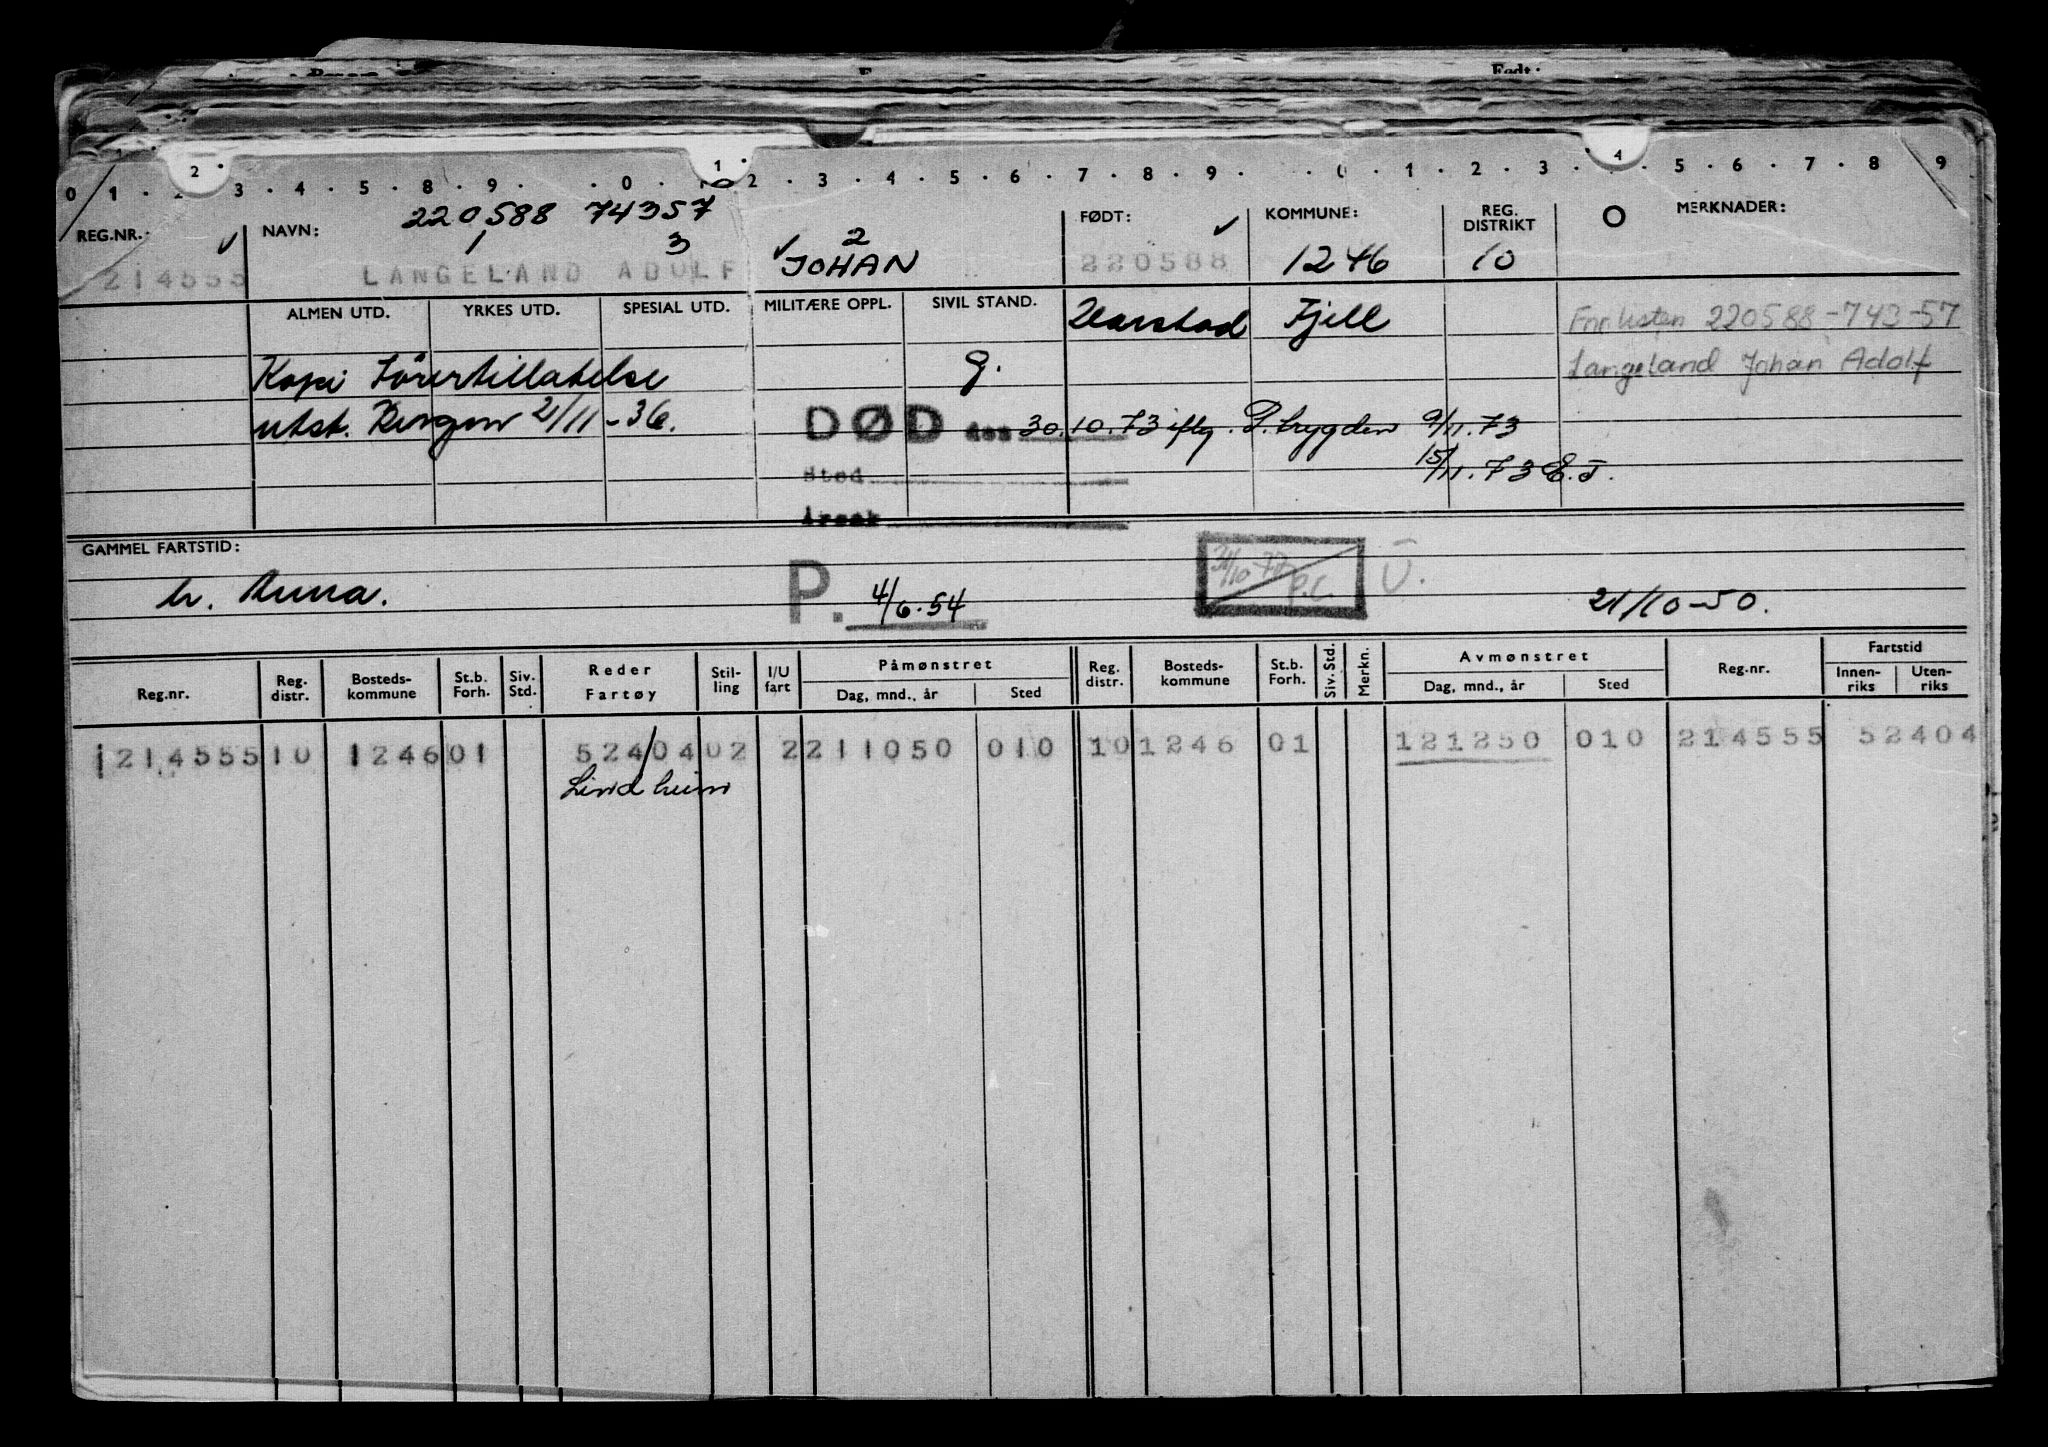 Født:
2 1 4
0 1 . 2 . 3 . 4 . 5 . 8 . 9 . . 0 . 1 . 2 . 3 . 4 . 5 . 6 . 7 . 8 . 9 . . 0 . 1 . 2 . 3 . 4 . 5 . 6 . 7 . 8 9
220588 74357
REG.NR.: NAVN: FØDT: KOMMUNE: REG. DISTRIKT O MERKNADER:
1 3 2
214555 LANGELAND ADOLF JOHAN 220588 1246 10
ALMEN UTD. YRKES UTD. SPESIAL UTD. MILITÆRE OPPL. SIVIL STAND. Harstad Fjell Fnrlisten 220588-743-57
Kopi Førertillatelse g. Langeland Johan Adolf
utst. Bergen 21/11-36. DØD den 30.10.73 iflg. P.trygden 9/11.73
Sted 15/11.73 E.T.
Årsak
GAMMEL FARTSTID: 31/10 P.C. U.
h. Anna. P. 4/6.54 21/10-50.
Reg.nr. Reg. distr. Bosteds-kommune St.b. Forh. Siv. Std. Reder Fartøy Stil-ling I/U fart Påmønstret Dag, mnd., år Sted Reg. distr. Bosteds-kommune St.b. Forh. Siv. Std. Merkn. Avmønstret Dag, mnd., år Sted Reg.nr. Fartstid Innen-riks Uten-riks
1214555 10 1246 01 52404 02 2 211050 010 10 1246 01 121250 010 214555 52404
Lindheim